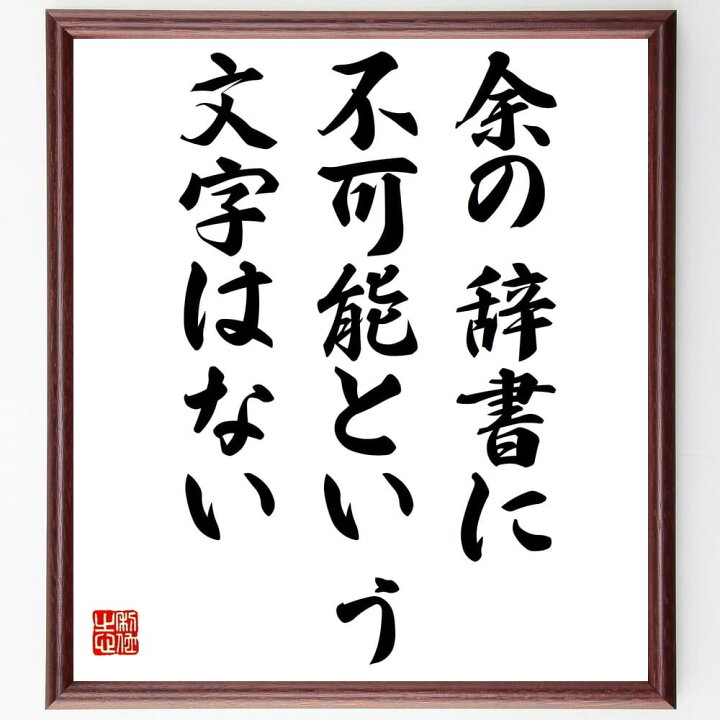 余の辞書に
不可能という
文字はない